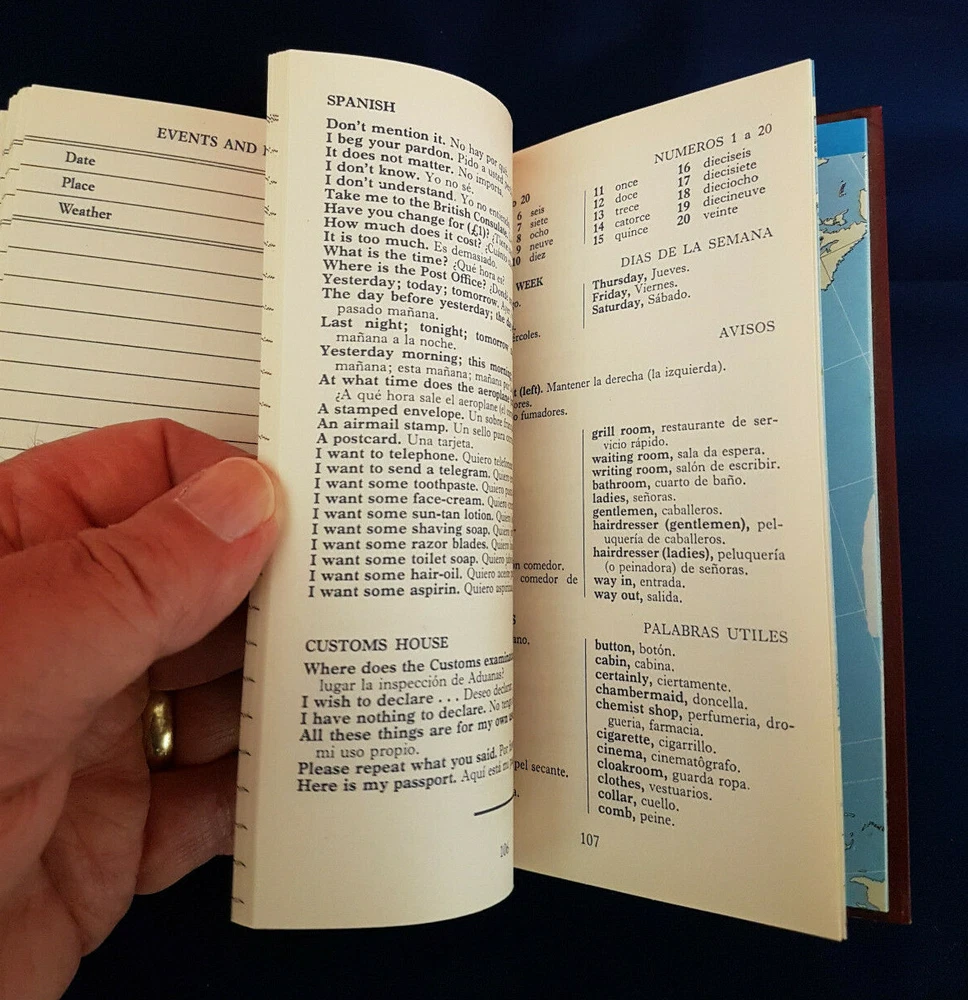 EVENTS AND
Date
Place
Weather
SPANISH
Don't mention it. No hay por que.
I beg your pardon. Pido a usted
It does not matter. No importa
I don't know. Yo no sé.
I don't understand. Yo no entiendo
Take me to the British Consulate.
Have you change for (£1)?
How much does it cost?
It is too much. Es demasiado.
What is the time? ¿Qué hora es?
Where is the Post Office?
Yesterday; today; tomorrow.
The day before yesterday; the
pasado mañana.
Last night; tonight; tomorrow
mañana a la noche.
Yesterday morning; this morning
mañana; esta mañana; mañana
At what time does the aeroplane
¿A qué hora sale el aeroplane
A stamped envelope. Un sobre
An airmail stamp. Un sello para
A postcard. Una tarjeta.
I want to telephone. Quiero
I want to send a telegram.
I want some toothpaste. Quiero
I want some face-cream. Quiero
I want some sun-tan lotion.
I want some shaving soap.
I want some razor blades. Quiero
I want some toilet soap. Quiero
I want some hair-oil. Quiero
I want some aspirin. Quiero
CUSTOMS HOUSE
Where does the Customs
lugar la inspección de Aduanas?
I wish to declare . . . Deseo
I have nothing to declare. No
All these things are for my own
mi uso propio.
Please repeat what you said.
Here is my passport. Aquí está mi
106
NUMEROS 1 a 20
20
11 once 16 dieciseis
6 seis 12 doce 17 diecisiete
7 siete 13 trece 18 dieciocho
8 ocho 14 catorce 19 diecineuve
9 neuve 15 quince 20 veinte
10 diez
WEEK DIAS DE LA SEMANA
Thursday, Jueves.
Friday, Viernes.
Saturday, Sábado.
AVISOS
(left). Mantener la derecha (la izquierda).
fumadores.
grill room, restaurante de ser-
vicio rápido.
waiting room, sala da espera.
writing room, salón de escribir.
bathroom, cuarto de baño.
ladies, señoras.
gentlemen, caballeros.
hairdresser (gentlemen), pel-
uquería de caballeros.
comedor. hairdresser (ladies), peluquería
comedor de (o peinadora) de señoras.
way in, entrada.
way out, salida.
PALABRAS UTILES
button, botón.
cabin, cabina.
certainly, ciertamente.
chambermaid, doncella.
chemist shop, perfumeria, dro-
gueria, farmacia.
cigarette, cigarrillo.
cinema, cinematôgrafo.
secante. cloakroom, guarda ropa.
clothes, vestuarios.
collar, cuello.
comb, peine.
107